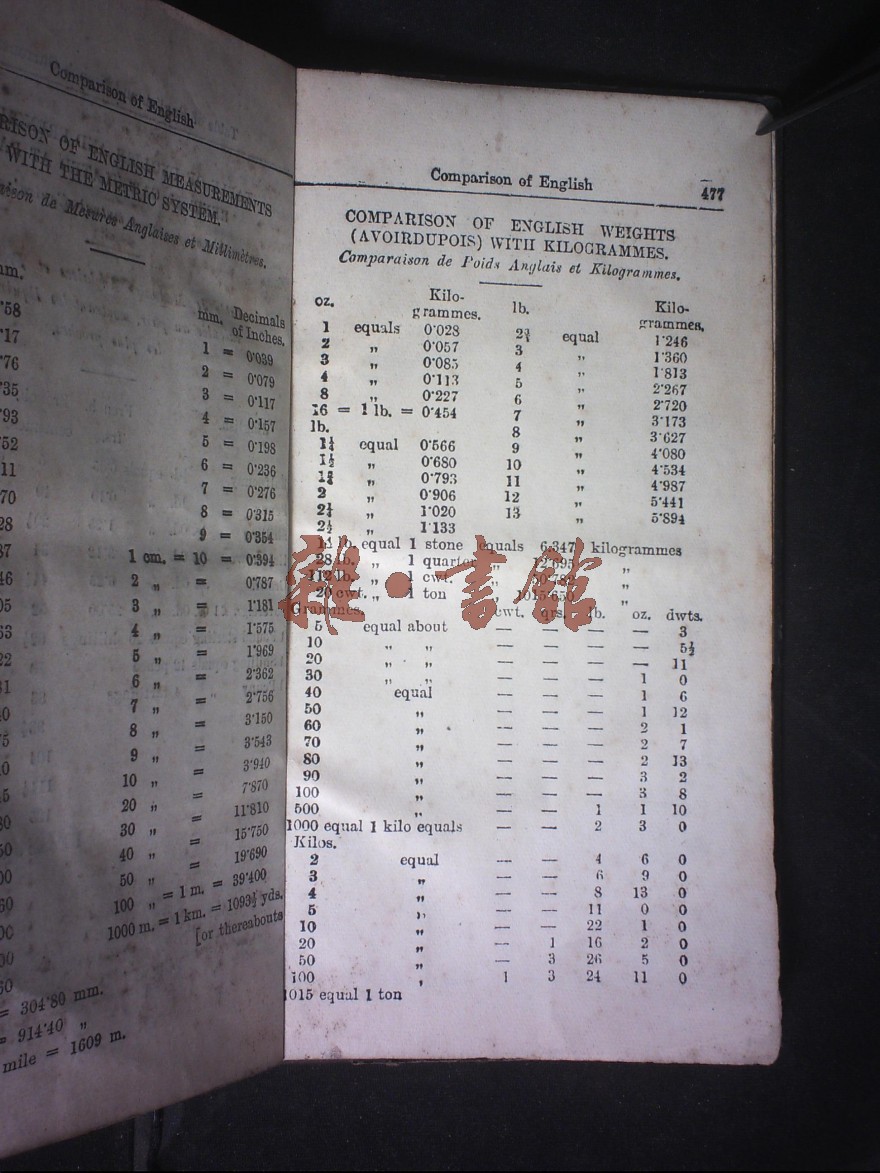 Comparison of English
OF ENGLISH MEASUREMENTS
WITH THE METRIC SYSTEM.
de Mesures Anglaises et Millimètres.
mm. Decimals
of Inches.
1 = 0·039
2 = 0·079
3 = 0·117
4 = 0·157
5 = 0·198
6 = 0·236
7 = 0·276
8 = 0·315
9 = 0·354
1 cm. = 10 = 0·394
2 „ = 0·787
3 „ = 1·181
4 „ = 1·575
5 „ = 1·969
6 „ = 2·362
7 „ = 2·756
8 „ = 3·150
9 „ = 3·543
10 „ = 3·940
20 „ = 7·870
30 „ = 11·810
40 „ = 15·750
50 „ = 19·690
100 „ = 1 m. = 39·400
1000 m. = 1 km. = 1093½ yds.
[or thereabouts
= 304·80 mm.
= 914·40 „
mile = 1609 m.
Comparison of English 477
COMPARISON OF ENGLISH WEIGHTS
(AVOIRDUPOIS) WITH KILOGRAMMES.
Comparaison de Poids Anglais et Kilogrammes.
oz. Kilo- lb. Kilo-
grammes. grammes.
1 equals 0·028 2¾ equal 1·246
2 „ 0·057 3 „ 1·360
3 „ 0·085 4 „ 1·813
4 „ 0·113 5 „ 2·267
8 „ 0·227 6 „ 2·720
16 = 1 lb. = 0·454 7 „ 3·173
lb. 8 „ 3·627
1¼ equal 0·566 9 „ 4·080
1½ „ 0·680 10 „ 4·534
1¾ „ 0·793 11 „ 4·987
2 „ 0·906 12 „ 5·441
2¼ „ 1·020 13 „ 5·894
2½ „ 1·133
14 lb. equal 1 stone equals 6·347 kilogrammes
28 lb. „ 1 quarter „ 12·695 „
112 lb. „ 1 cwt. „ 50·782 „
20 cwt. „ 1 ton „ 1015·650 „
雜·書館
Grammes. cwt. qrs. lb. oz. dwts.
5 equal about — — — — 3
10 „ „ — — — — 5½
20 „ „ — — — — 11
30 „ „ — — — 1 0
40 equal — — — 1 6
50 „ — — — 1 12
60 „ — — — 2 1
70 „ — — — 2 7
80 „ — — — 2 13
90 „ — — — 3 2
100 „ — — — 3 8
500 „ — — 1 1 10
1000 equal 1 kilo equals — — 2 3 0
Kilos.
2 equal — — 4 6 0
3 „ — — 6 9 0
4 „ — — 8 13 0
5 „ — — 11 0 0
10 „ — — 22 1 0
20 „ — 1 16 2 0
50 „ — 3 26 5 0
100 „ 1 3 24 11 0
1015 equal 1 ton